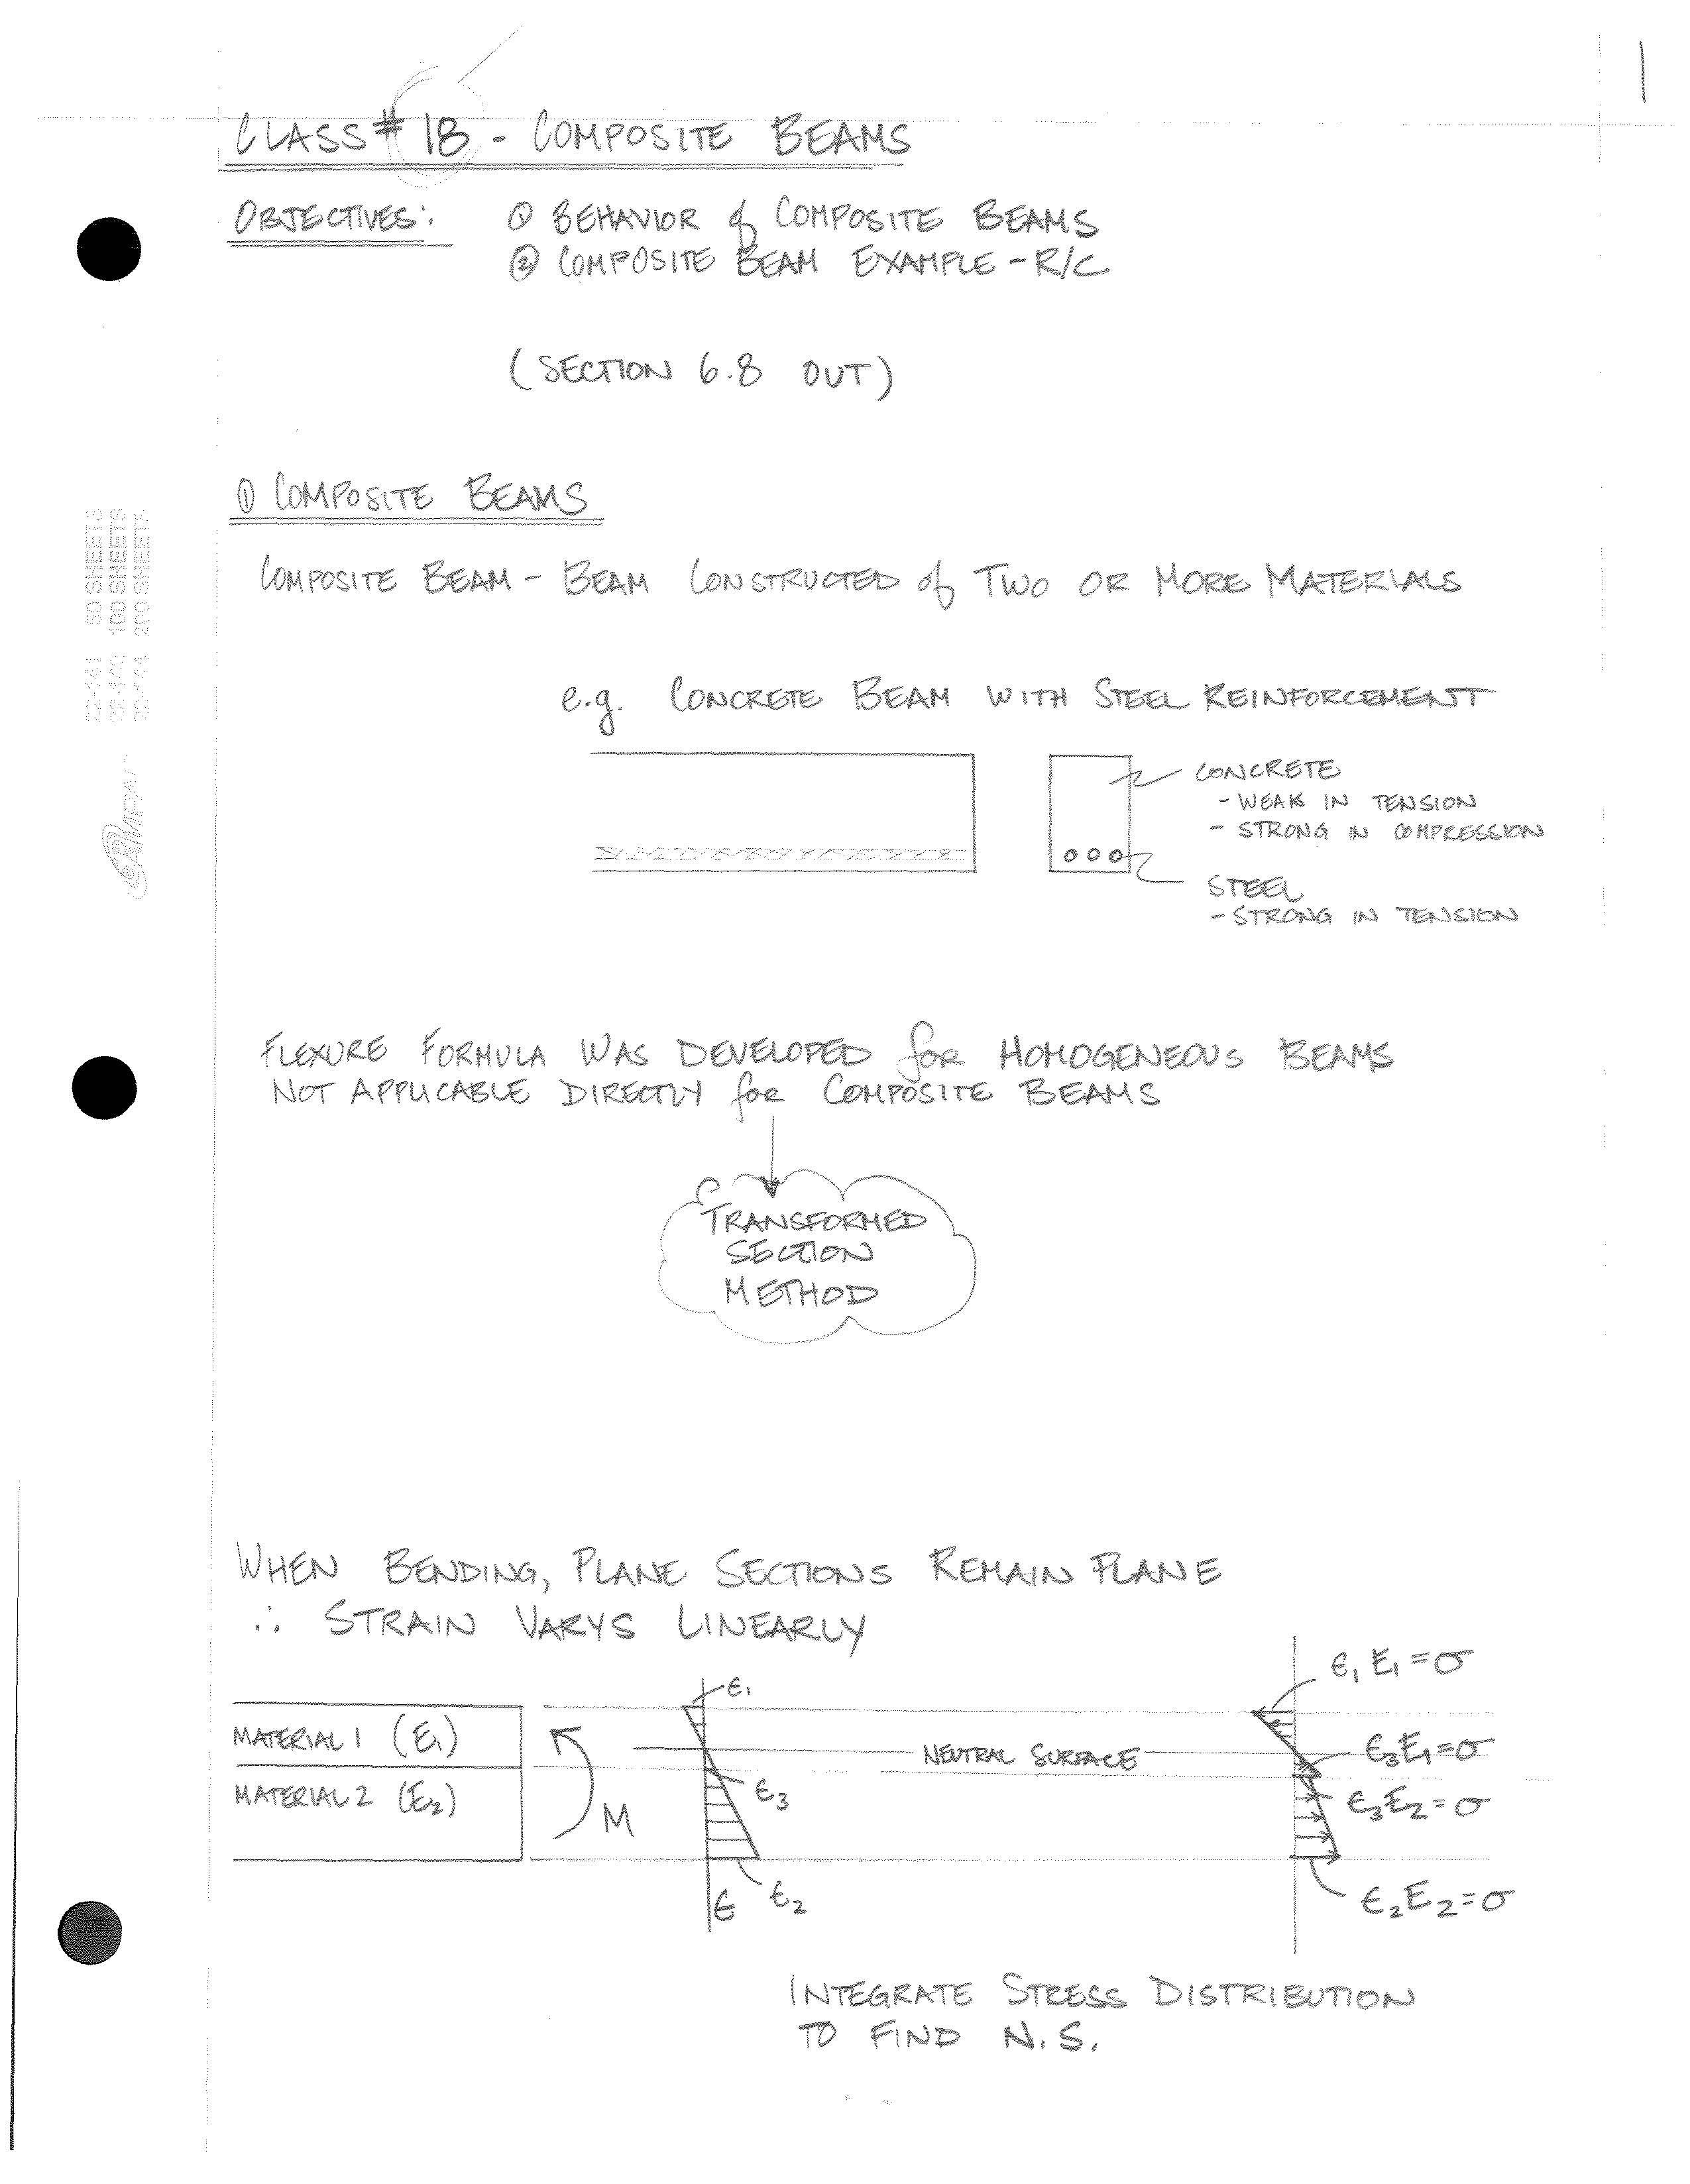 1
CLASS # 18 - COMPOSITE BEAMS
OBJECTIVES: ① BEHAVIOR of COMPOSITE BEAMS
② COMPOSITE BEAM EXAMPLE - R/C
(SECTION 6.8 OUT)
① COMPOSITE BEAMS
COMPOSITE BEAM - BEAM CONSTRUCTED of TWO OR MORE MATERIALS
e.g. CONCRETE BEAM WITH STEEL REINFORCEMENT
CONCRETE
- WEAK IN TENSION
- STRONG IN COMPRESSION
STEEL
- STRONG IN TENSION
FLEXURE FORMULA WAS DEVELOPED for HOMOGENEOUS BEAMS
NOT APPLICABLE DIRECTLY for COMPOSITE BEAMS
TRANSFORMED
SECTION
METHOD
WHEN BENDING, PLANE SECTIONS REMAIN PLANE
∴ STRAIN VARYS LINEARLY
MATERIAL 1 (E₁)
MATERIAL 2 (E₂)
M
ε₁
ε₃
ε₂
ε
NEUTRAL SURFACE
ε₁ E₁ = σ
ε₃E₁ = σ
ε₃E₂ = σ
ε₂E₂ = σ
INTEGRATE STRESS DISTRIBUTION
TO FIND N.S.
50 SHEETS
100 SHEETS
200 SHEETS
22-141
22-142
22-144